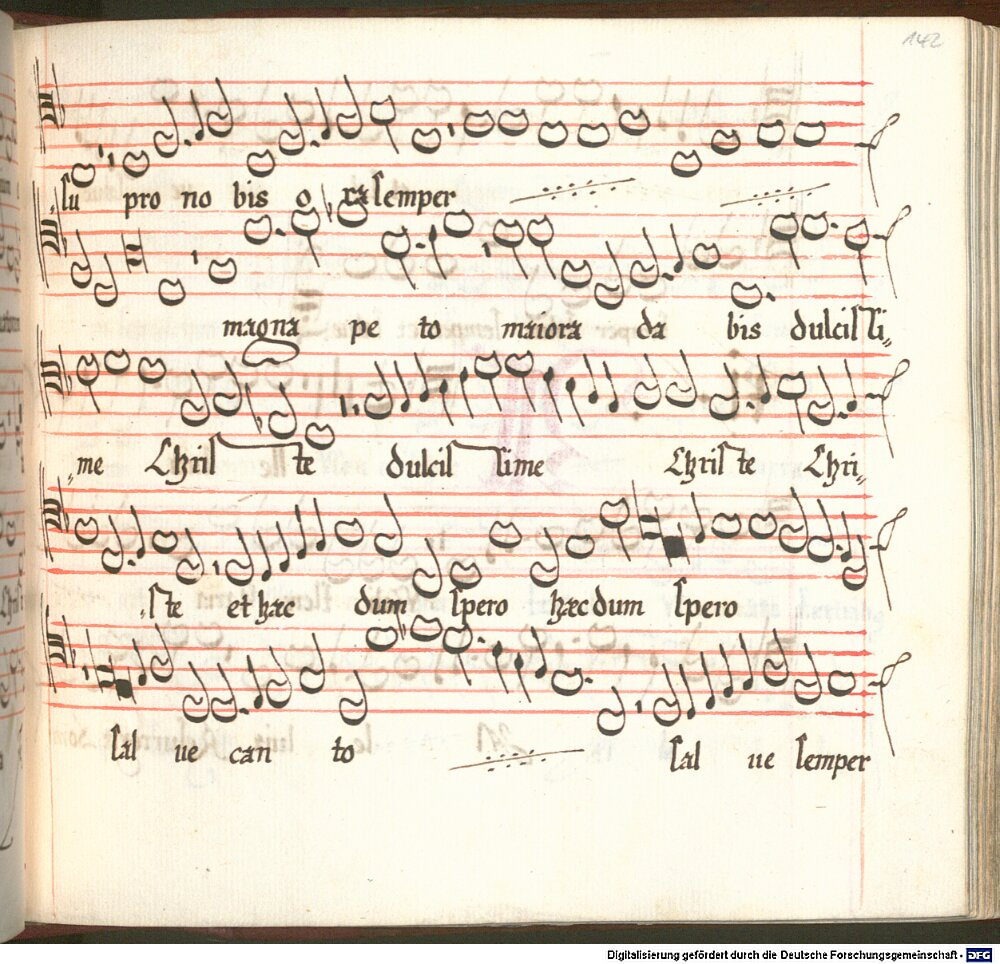 142
su pro no bis o ra semper
magna pe to maiora da bis dulcis si„
„me Chris te dulcis sime Chris te Chri„
„ste et hæc dum spero hæc dum spero
sal ue can to sal ue semper
Digitalisierung gefördert durch die Deutsche Forschungsgemeinschaft - DFG